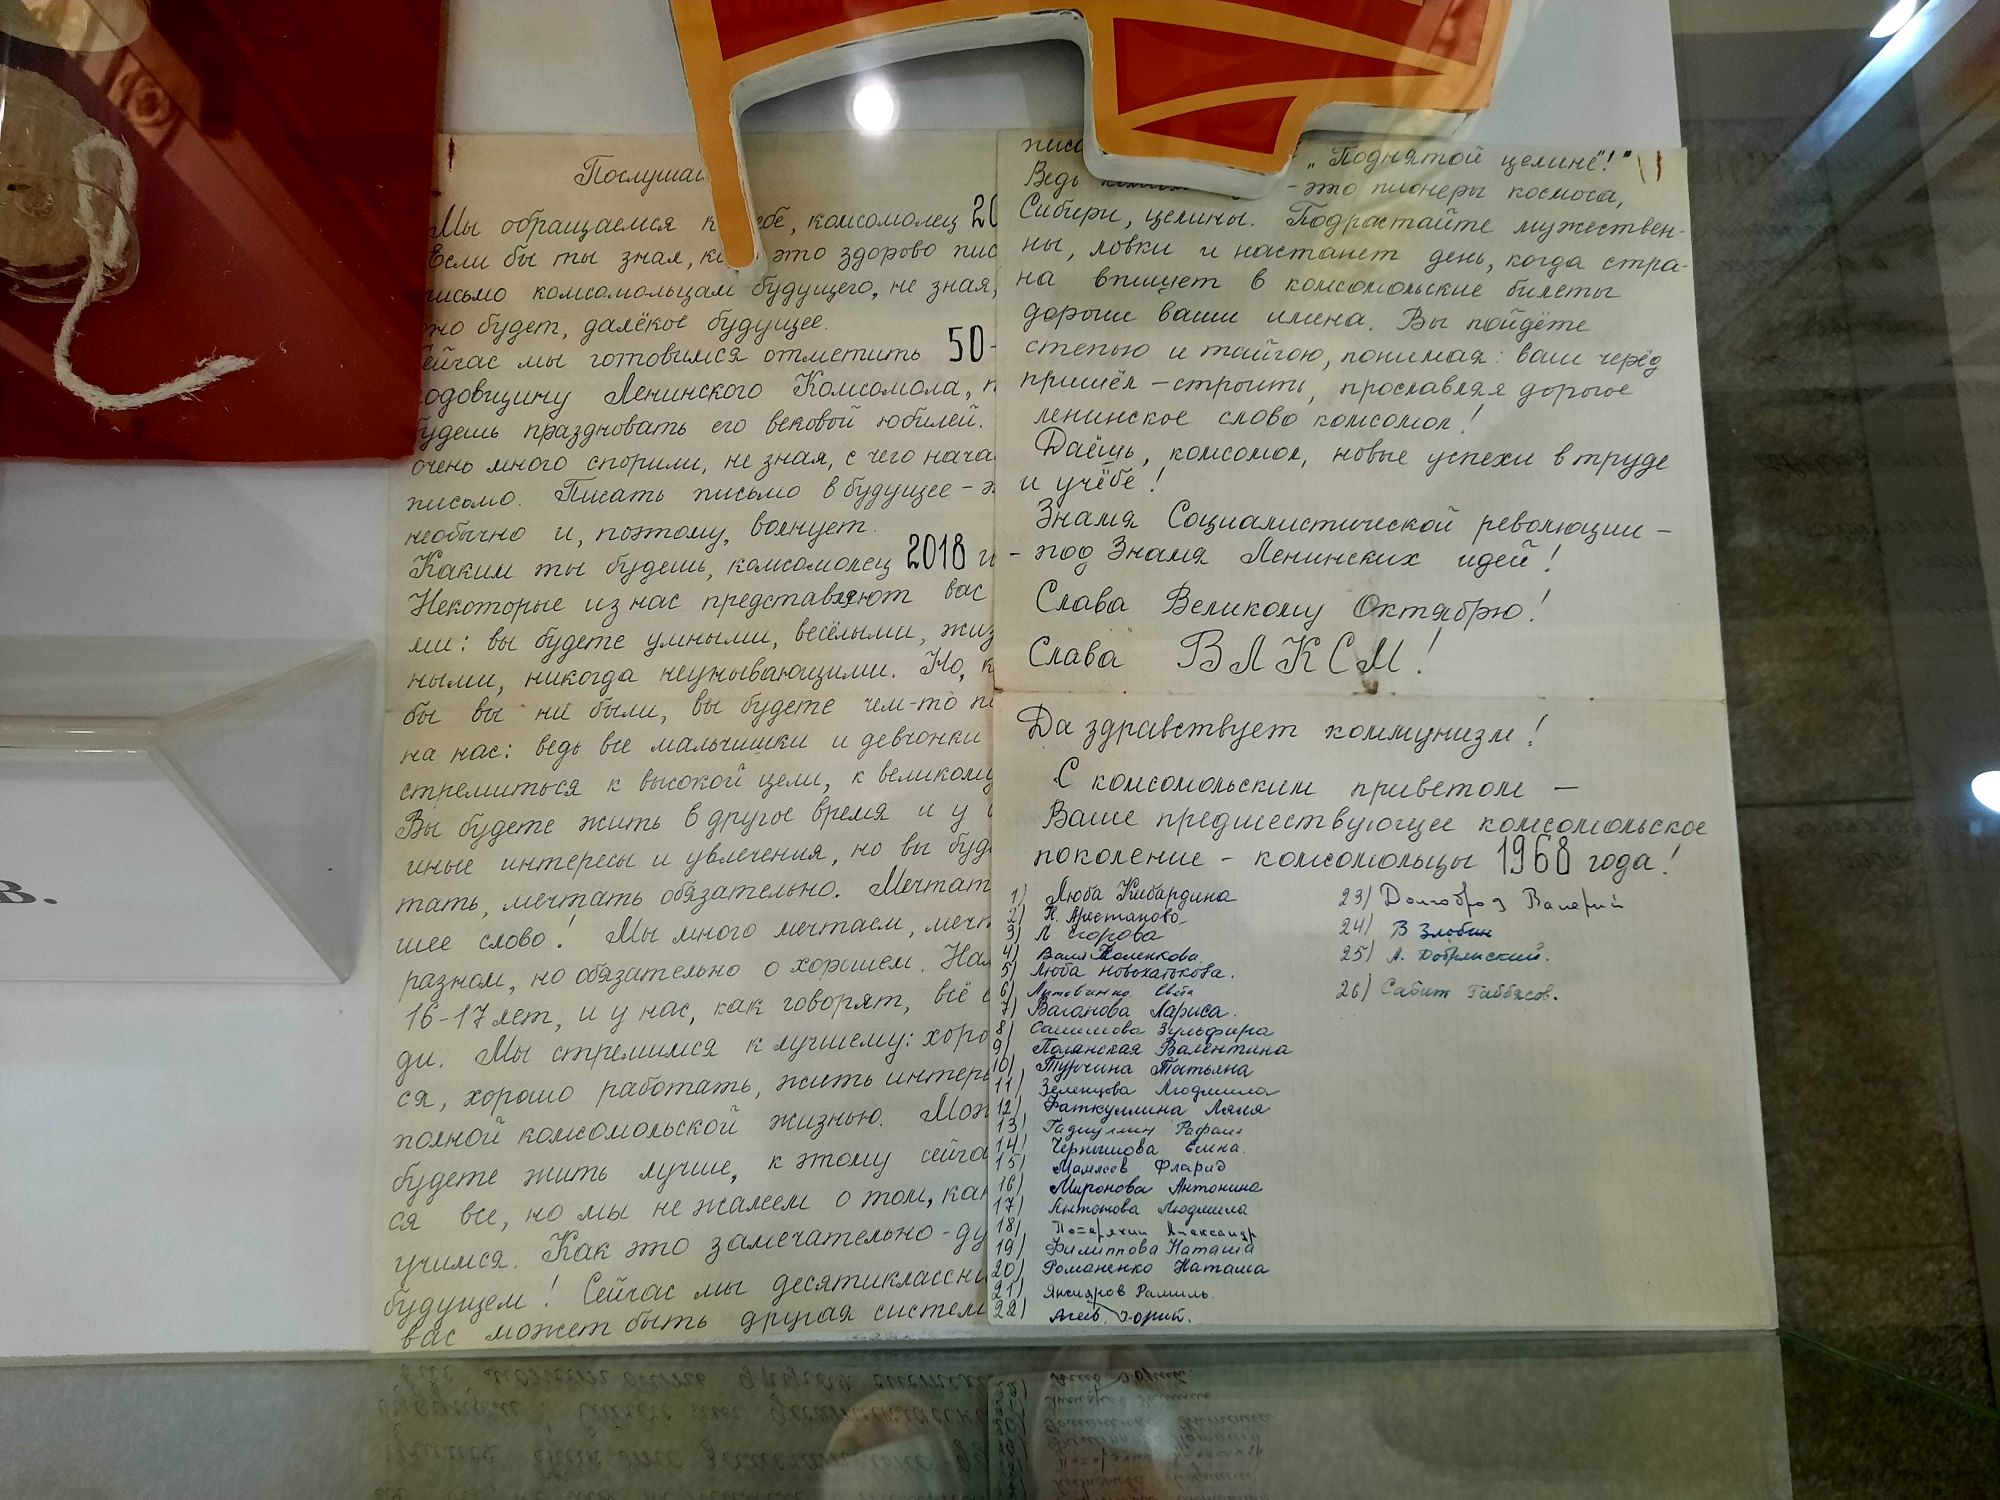 Послушай
Мы обращаемся к тебе, комсомолец 20
Если бы ты знал, как это здорово пис
письмо комсомольцам будущего, не зная,
это будет, далёкое будущее.
Сейчас мы готовимся отметить 50-
годовщину Ленинского Комсомола, п
будешь праздновать его вековой юбилей.
очень много спорили, не зная, с чего нача
письмо. Писать письмо в будущее - э
необычно и, поэтому, волнует.
Каким ты будешь, комсомолец 2018 г
Некоторые из нас представляют вас
ми: вы будете умными, весёлыми, жиз
ными, никогда неунывающими. Но, к
бы вы ни были, вы будете чем-то по
на нас: ведь все мальчишки и девчонки
стремиться к высокой цели, к великому
Вы будете жить в другое время и у
иные интересы и увлечения, но вы буд
тать, мечтать обязательно. Мечтат
шее слово! Мы много мечтаем, мечт
разном, но обязательно о хорошем. Нам
16-17 лет, и у нас, как говорят, всё
ди. Мы стремимся к лучшему: хоро
ся, хорошо работать, жить интере
полной комсомольской жизнью. Мож
будете жить лучше, к этому сейча
ся все, но мы не жалеем о том, как
учимся. Как это замечательно - ду
будущем! Сейчас мы десятиклассни
вас может быть другая систем
пис "Поднятой целине!"
Ведь - это пионеры космоса,
Сибири, целины. Подрастайте мужествен-
ны, ловки и настанет день, когда стра-
на впишет в комсомольские билеты
дорогие ваши имена. Вы пойдёте
степью и тайгою, понимая: ваш черёд
пришёл - строить, прославляя дорогое
ленинское слово комсомол!
Даёшь, комсомол, новые успехи в труде
и учёбе!
Знамя Социалистической революции -
- под Знамя Ленинских идей!
Слава Великому Октябрю!
Слава ВЛКСМ!
Да здравствует коммунизм!
С комсомольским приветом -
Ваше предшествующее комсомольское
поколение - комсомольцы 1968 года!
1) Люба Кибардина
2) Н. Арестаново
3) Л Егорова
4) Валя Коленкова.
5) Люба Новохатькова.
6) Литовченко Света
7) Ваганова Лариса.
8) Салимова Зульфира
9) Паганская Валентина
10) Турчина Татьяна
11) Зеленцова Людмила
12) Фаткуллина Ляля
13) Гадиуллин Рафаил
14) Чернышова Елена.
15) Мамлеев Фларид
16) Миронова Антонина
17) Антонова Людмила
18) Александр
19) Филиппова Наташа
20) Романенко Наташа
21) Янсияров Рамиль.
22) Агеев Юрий.
23) Долгоброд Валерий
24) В Злобин
25) А. Добрынский.
26) Сабит Габбасов.
В.